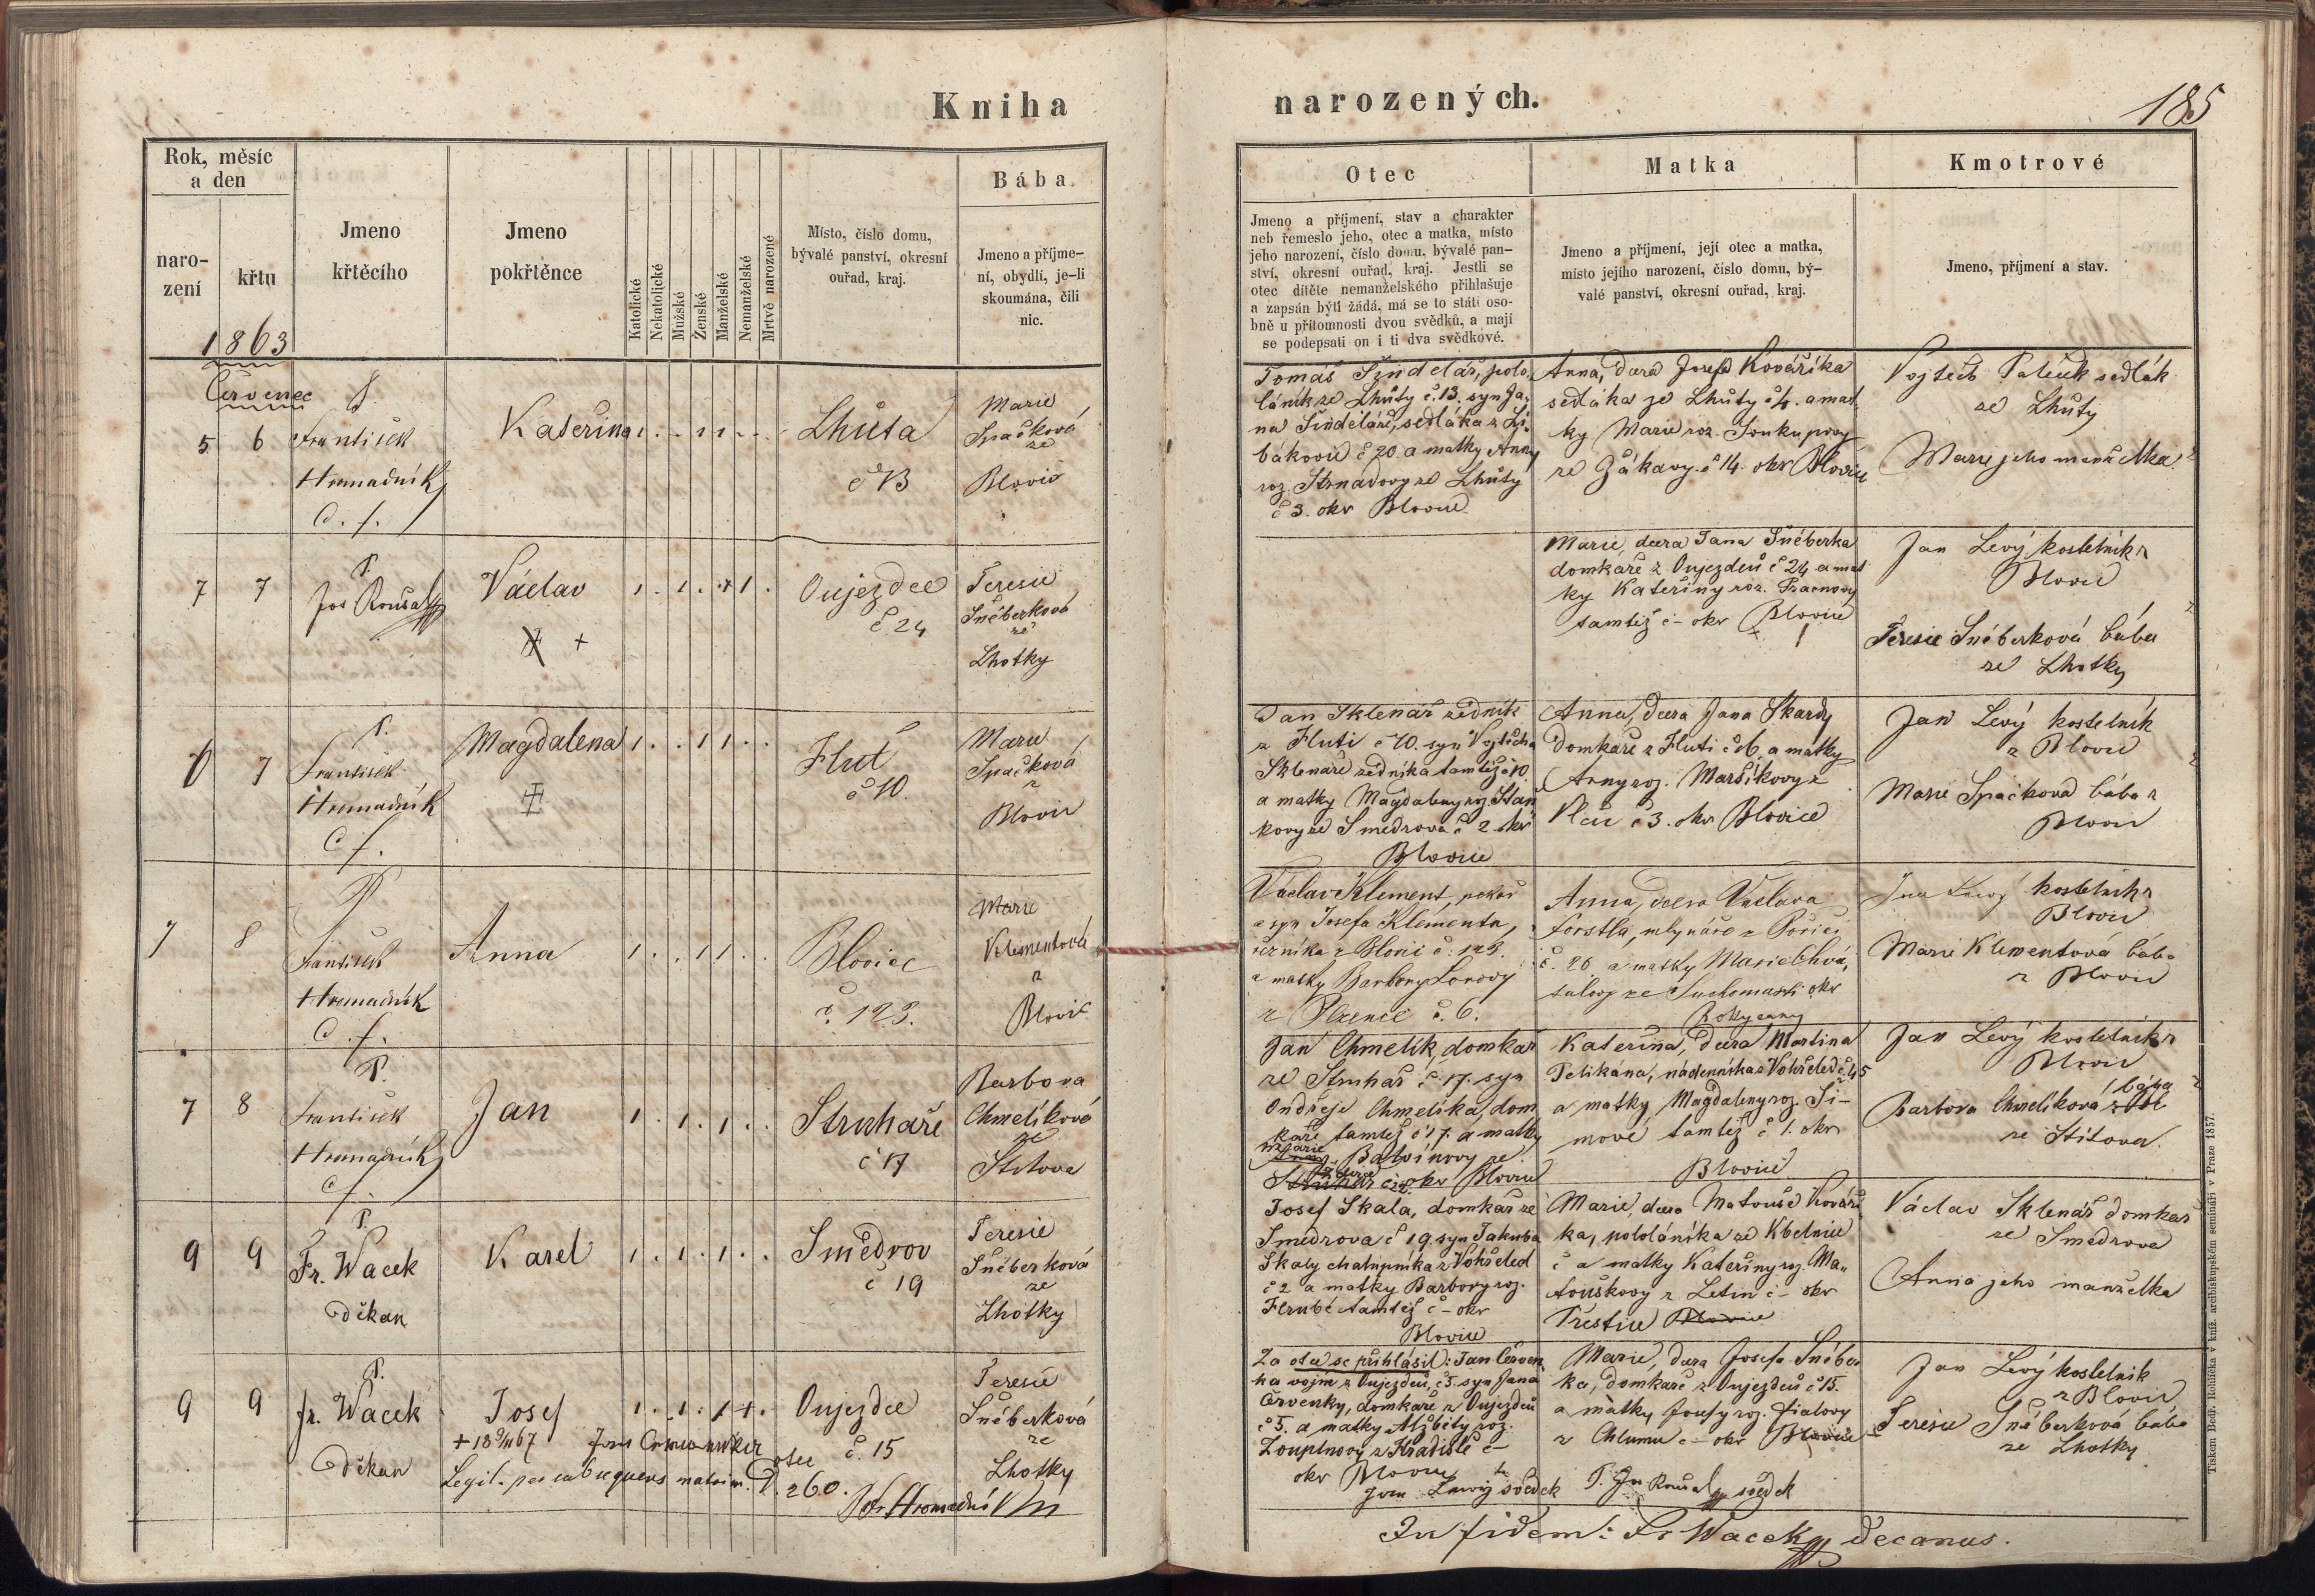 Kniha
narozených.
185
Rok, měsíc
a den
naro-
zení
křtu
Jmeno
křtěcího
Jmeno
pokřtěnce
Katolické
Nekatolické
Mužské
Ženské
Manželské
Nemanželské
Mrtvě narozené
Místo, číslo domu,
bývalé panství, okresní
ouřad, kraj.
Bába.
Jmeno a příjme-
ní, obydlí, je-li
skoumána, čili
nic.
Otec
Jmeno a příjmení, stav a charakter
neb řemeslo jeho, otec a matka, místo
jeho narození, číslo domu, bývalé pan-
ství, okresní ouřad, kraj. Jestli se
otec dítěte nemanželského přihlašuje
a zapsán býti žádá, má se to státi oso-
bně u přítomnosti dvou svědků, a mají
se podepsati on i ti dva svědkové.
Matka
Jmeno a příjmení, její otec a matka,
místo jejího narození, číslo domu, bý-
valé panství, okresní ouřad, kraj.
Kmotrové
Jmeno, příjmení a stav.
1863
Červenec
5 6
P.
František
Hromadník
C. f.
Kateřina
1 . - 1 1 - -
Lhůta
č 13
Marie
Špačková
ze
Blovic
Tomáš Šindelář, polo-
láník ze Lhůty č. 13. syn Ja-
na Šindeláře, sedláka z Li-
bákovic č 20 a matky Anny
roz. Strnadovy ze Lhůty
č 3. okr Blovice
Anna, dcera Josefa Kováříka
sedláka ze Lhůty č 4. a mat-
ky Marie roz. Soukupovy
ze Žákavy č 14. okr Blovice
Vojtěch Paleček sedlák
ze Lhůty
Marie jeho manželka
7 7
P.
Jos Roušal
Václav
+
1 . 1 . + 1 .
Oujezdec
č 24
Teresie
Šnéberková
ze
Lhotky
Marie, dcera Jana Šnéberka
domkáře z Oujezdců č 24 a mat
ky Kateřiny roz.
tamtéž č - okr Blovice
Jan Levý kostelník z
Blovic
Teresie Šnéberková bába
ze Lhotky
6 7
P.
František
Hromadník
C f.
Magdalena
1 . . 1 1 . .
Hluť
č 10.
Marie
Špačková
z
Blovic
Jan Sklenář zedník
z Hluti č 10. syn Vojtěcha
Sklenáře zedníka tamtéž č 10.
a matky Magdaleny roz. Staň
kovy ze Smedrova č 2 okr
Blovice
Anna, dcera Jana Skardy
domkáře z Hluti č 6. a matky
Anny roz. Maršíkovy z
Vlčic č 3. okr Blovice
Jan Levý kostelník
z Blovic
Marie Špačková bába z
Blovic
7 8
P
František
Hromadník
C. f.
Anna
1 . . 1 1 . .
Blovice
č. 123.
Marie
Klementová
z
Blovic
Václav Klement, pekař
a syn Josefa Klementa,
řezníka z Blovic č. 123.
a matky Barbory Lorovy
z Plzence č. 6.
Anna, dcera Václava
Forstla, mlynáře z Poříčí
č. 26 a matky Marie Chvá-
talovy ze Suchomasti okr
Rokycany
Jan Levý kostelník z
Blovic
Marie Klementová bába
z Blovic
7 8
P.
František
Hromadník
C f.
Jan
1 . 1 . 1 . .
Struhaře
č 17
Barbora
Chmelíková
ze
Štítova
Jan Chmelík, domkář
ze Struhař č. 17. syn
Ondřeje Chmelíka, dom
káře tamtéž č 17. a matky
Marie Balvínovy ze
okr Blovice
Kateřina, dcera Martina
Pelikána, nádenníka z Vohřeled č. 45
a matky Magdaleny roz. Ši-
mové tamtéž č 1. okr
Blovice
Jan Levý kostelník z
Blovic
Barbora Chmelíková bába
ze Štítova.
9 9
P.
Fr. Wacek
děkan
Karel
1 . 1 . 1 . .
Smědrov
č 19
Teresie
Šnéberková
ze
Lhotky
Josef Skala, domkář ze
Smedrova č 19. syn Jakuba
Skaly chalupníka z Vohřeled
č 2 a matky Barbory roz.
Hrubé tamtéž č - okr
Blovice
Marie, dcera Matouše Kováří
ka, pololáníka ze Kbelnice
č a matky Kateřiny roz. Ma-
touškovy z Letin č - okr
Přestice Blovice
Václav Sklenář domkář
ze Smedrova
Anna jeho manželka
9 9
P.
Fr. Wacek
děkan
Josef
+ 18 9/11 67
1 . 1 . 1 + .
Oujezdec
č. 15
Jan Červenka
otec
Legit. per subsequens matrim. D. 260.
Teresie
Šnéberková
ze
Lhotky
P. Fr Hromadník
Za otce se přihlásil: Jan Červen
ka vojín z Oujezdců, č 5. syn Jana
Červenky, domkáře z Oujezdců
č 5. a matky Alžběty roz.
Zouplnovy z Hradiště č -
okr Blovice
Jan Lewý svědek
Marie, dcera Josefa Šnéber
ka, domkáře z Oujezdců č 15.
a matky Josefy roz. Fialovy
z Chlumu č - okr Blovice
P. Jos Roušal svědek
Jan Levý kostelník
z Blovic
Teresie Šnéberková bába
ze Lhotky
In fidem: Fr Wacek decanus.
Tiskem Bedř. Rohlíčka v kníž. arcibiskupském semináři v Praze 1857.